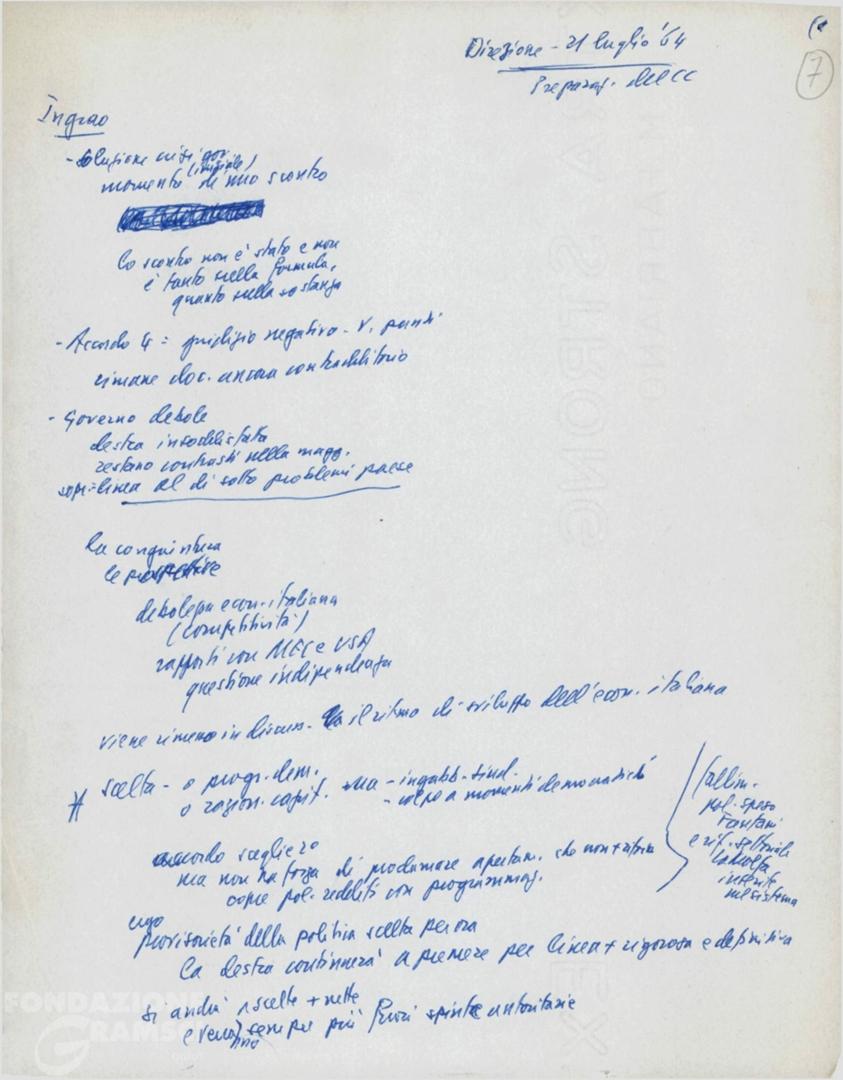 Direzione - 21 luglio '64
Preparaz. del CC
7
Ingrao
- soluzione crisi gov.
(iniziale)
momento di uno scontro
lo scontro non è stato e non
è tanto sulla formula,
quanto sulla sostanza
- Accordo 4 = giudizio negativo - V. punti
rimane doc. ancora contraddittorio
- Governo debole
destra insoddisfatta
restano contrasti nella magg.
linea al di sotto problemi paese
la congiuntura
le prospettive
debolezza econ. italiana
(competitività)
rapporti con MEC e USA
questione indipendenza
viene rimesso in discuss. il ritmo di sviluppo dell'econ. italiana
scelta - o progr. dem.
o razion. capit. - ingabb. sind.
- colpo a momenti democratici
fallim.
pol. spesa
Fanfani
e rif. settoriali
inserite
nel sistema
accordo
ma non ha forza di proclamare apertam. che non + ritiene
copre pol. redditi con programmaz.
ergo
provvisorietà della politica scelta per ora
La destra continuerà a premere per linea + rigorosa e definitiva
si andrà a scelte + nette
e verranno sempre più fuori spinte autoritarie
FONDAZIONE
GRAMSCI